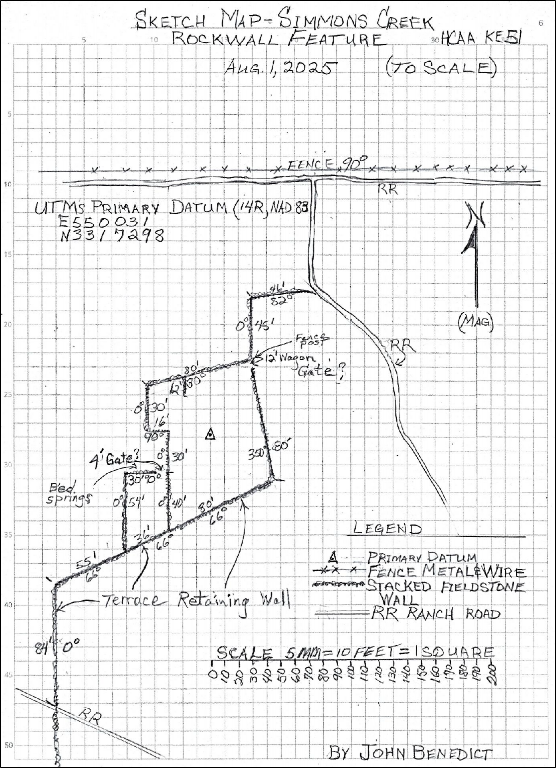 SKETCH MAP-SIMMONS CREEK
ROCKWALL FEATURE
HCAA KE51
AUG. 1, 2025
(TO SCALE)
5
10
30
6
5
FENCE 90°
10
RR
UTMs PRIMARY DATUM (14R, NAD 83
E550031
N3317298
N
(MAG)
15
46'
82°
0° 45'
20
Fence post
12' Wagon Gate?
RR
80'
12' 80°
25
0° 30'
16'
90°
4' Gate?
0° 30'
350° 80'
30
30' 90°
Bed springs
0° 54'
0° 40'
80'
66°
35
36'
66°
LEGEND
PRIMARY DATUM
FENCE METAL & WIRE
STACKED FIELDSTONE WALL
RR RANCH ROAD
55'
66°
Terrace Retaining Wall
40
84' 0°
SCALE 5MM=10 FEET=1 SQUARE
0 10 20 30 40 50 60 70 80 90 100 110 120 130 140 150 160 170 180 190 200
45
RR
50
BY JOHN BENEDICT